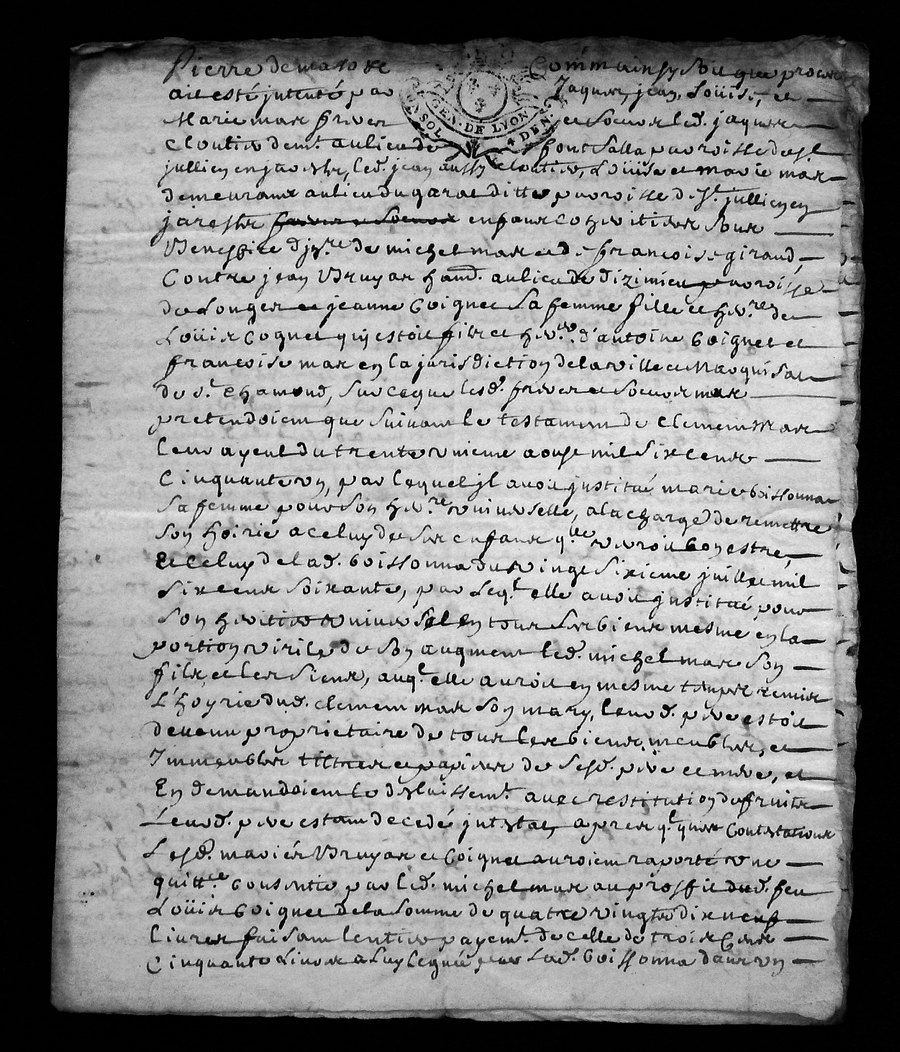 Comme ainsy soit que procès
ait esté jntenté par Jaques, jean, Loüise, et
Marie mas freres et soeurs led. jaques
cloutier dem.t au lieu de font Salla parroisse de s.t
jullien en jarestz, led. jean aussy cloutier, Loüise et marie mas
demeurans au lieu du garat ditte parroisse de s.t jullien en
jarestz freres et soeurs enfans coheritiers sous
Beneffice d'jn.re de michel mas et de françoise giraud,
Contre jean Bruyas hand. au lieu de Dizimieu parroisse
de Longes et jeanne Coignet sa femme fille et her.re de
Loüis Cognet quy estoit fils et her.er d'antoine Coignet et
françoise mas en la jurisdiction de la ville et Marquisat
de s.t chamond, sur ce que lesd. freres et soeurs mas
pretendoient que suivant le testament de clement Mas
leur ayeul du trente unieme aoust mil six cens
Cinquante un, par lequel jl avoit justitué marie boissonna
sa femme pour son her.re universelle, a la charge de remettre
son hoirie a celuy de ses enfans q.lle verroit bon estre,
Et celuy de lad. boissonna du vingt sixieme juillet mil
six cens soixante, par leq.l elle avoit justitué pour
son heritier universel en tous ses biens mesme en la
portion virile de son augment led. michel mas son
fils, et les siens, auq.l elle auroit en mesme temps remis
L'hoyrie dud. clement mas son mary, leurd. pere estoit
devenu proprietaire de tous les biens, meubles, et
Jmmeubles tiltres et papiers de sesd. pere et mere, et
En demandoient le delaissem.t avec restitution de fruits
Leurd. pere estant decedé jntestat, apres q.lques Contestations
Lesd. mariés Bruyas et Coignet auroient raporté une
quitt.ce consentie par led. michel mas au proffit dud. feu
Loüis Coignet de la somme de quatre vingts dix neuf
livres faisant l'entier payem.t de celle de trois cens
Cinquante livres a luy leguée par lad. boissonna dans un
GEN. DE LYON
SOL
4 DEN.